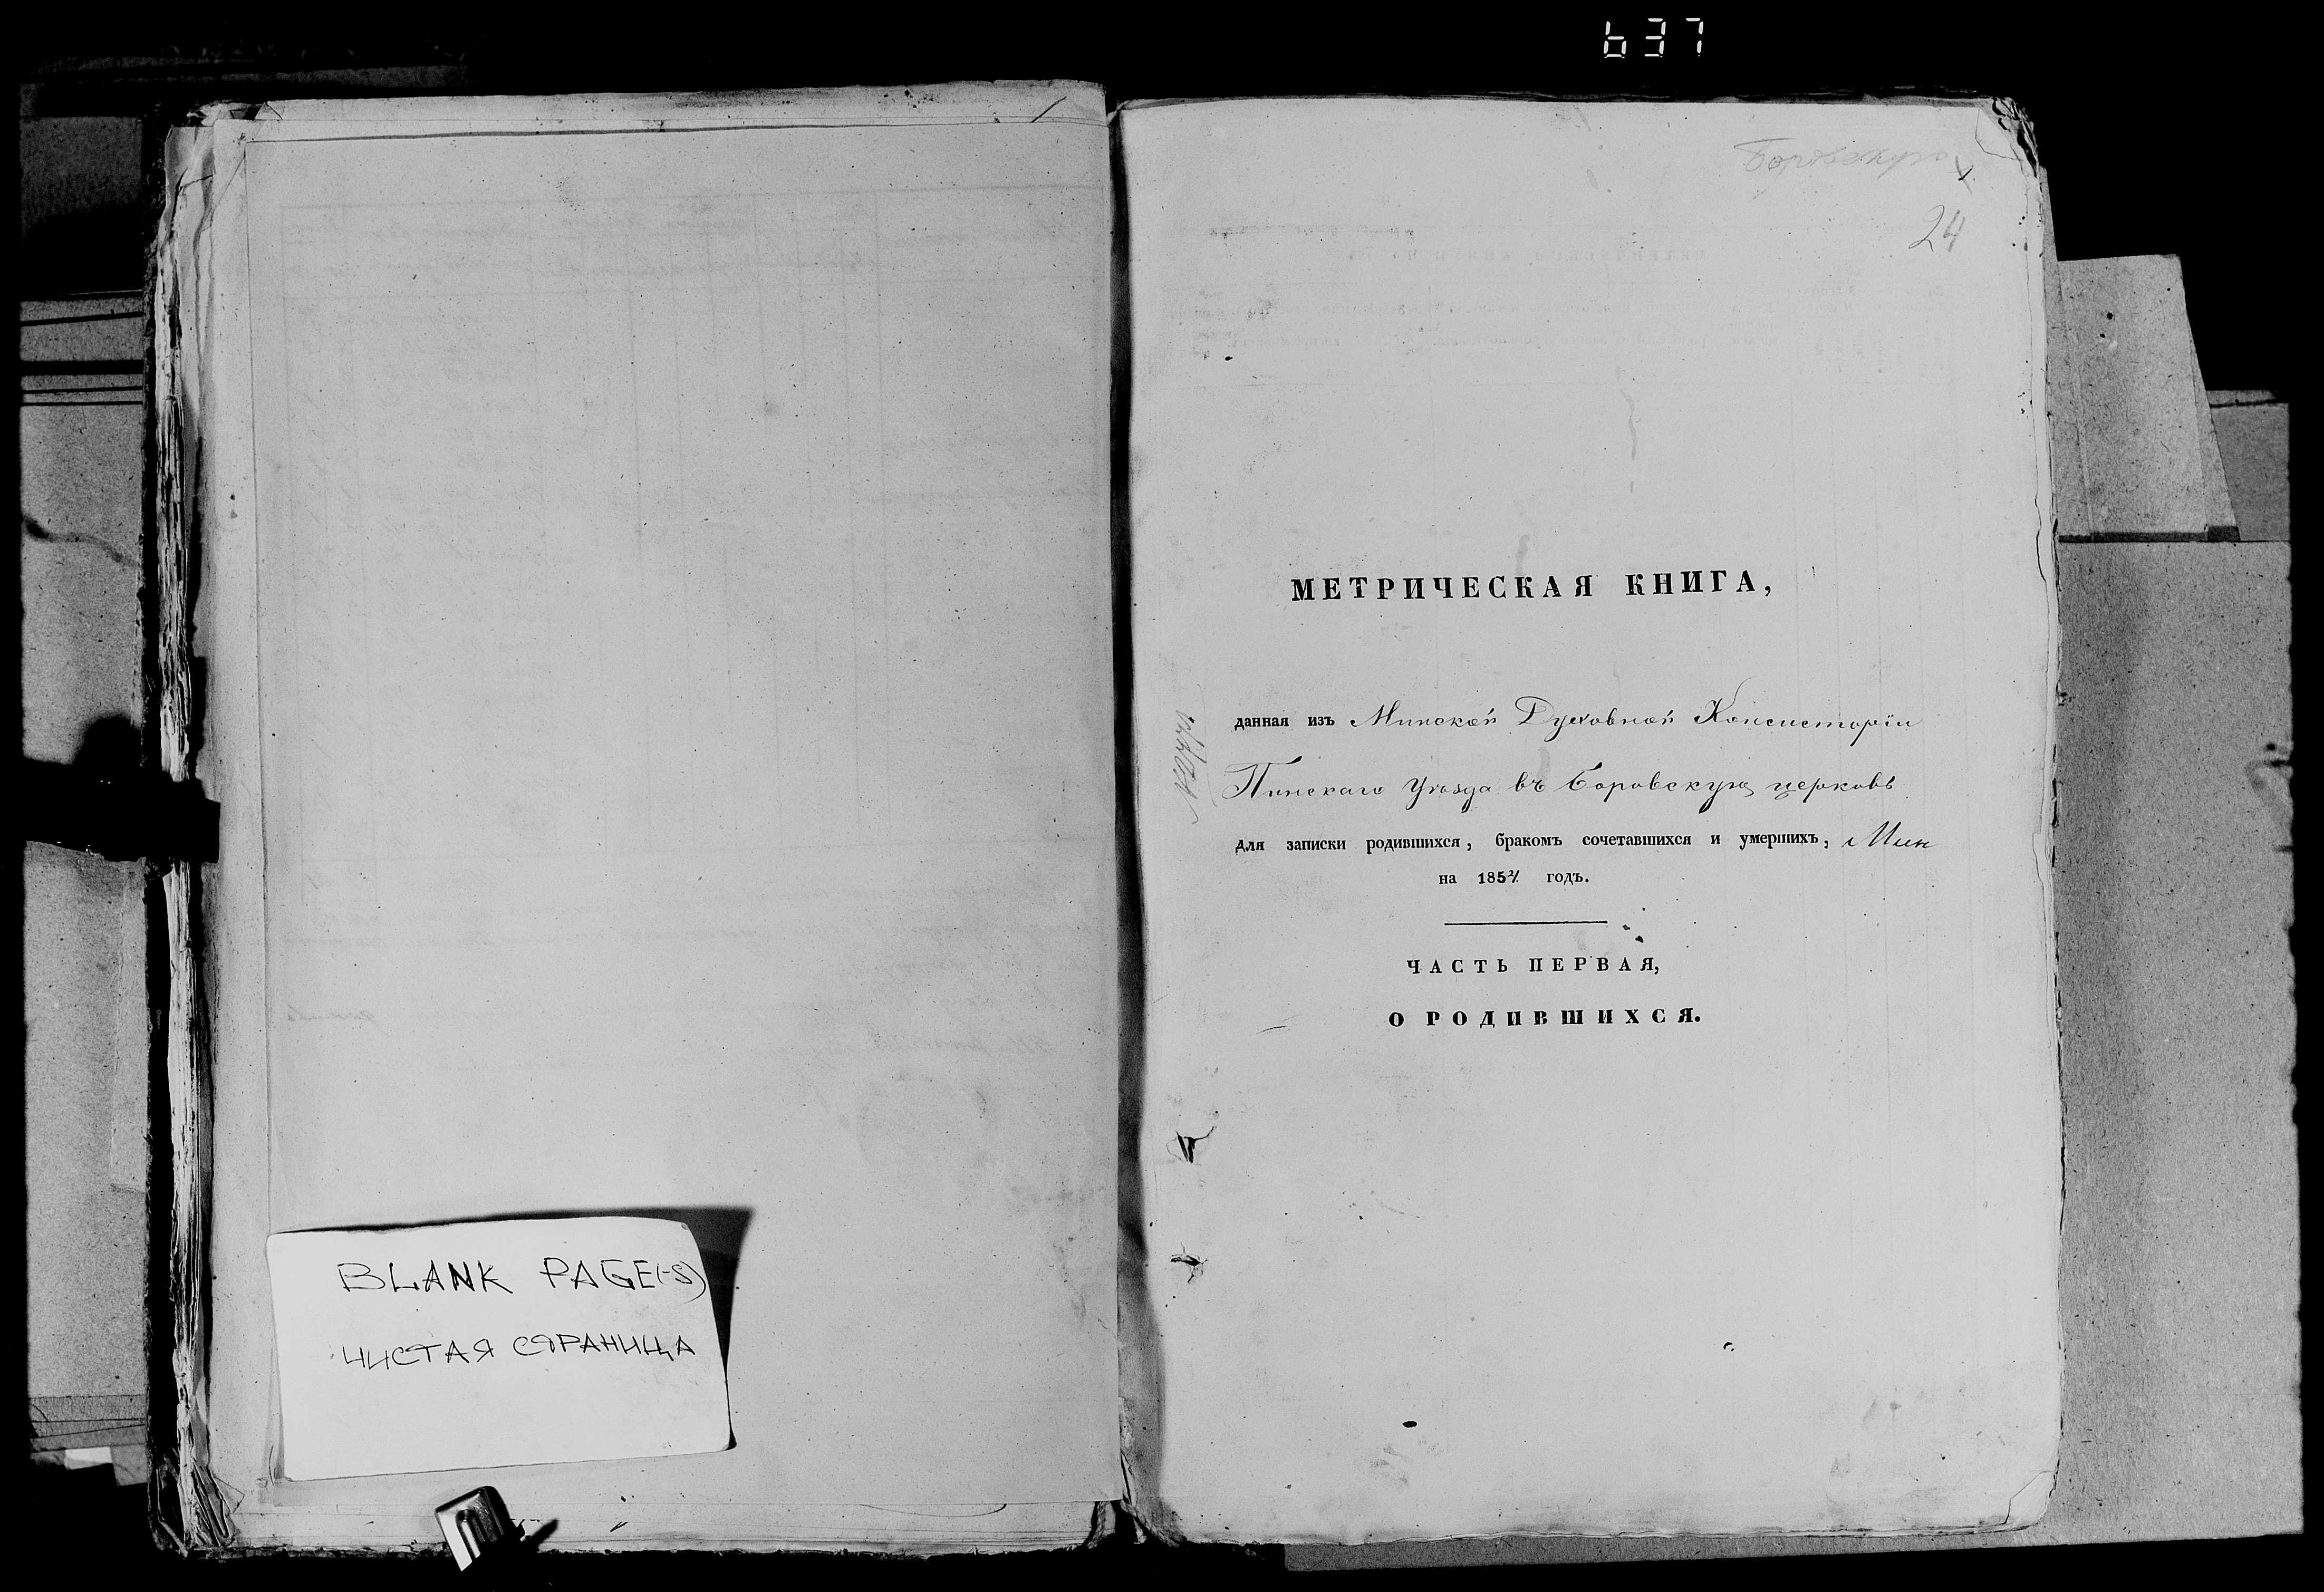 637
BLANK PAGE(-S)
ЧИСТАЯ СТРАНИЦА
Боровскую
24
МЕТРИЧЕСКАЯ КНИГА,
данная изъ Минской Духовной Консисторіи
Пинскаго Уѣзда въ Боровскую церковь
для записки родившихся, бракомъ сочетавшихся и умершихъ, Мин
на 1854 годъ.
ЧАСТЬ ПЕРВАЯ,
О РОДИВШИХСЯ.